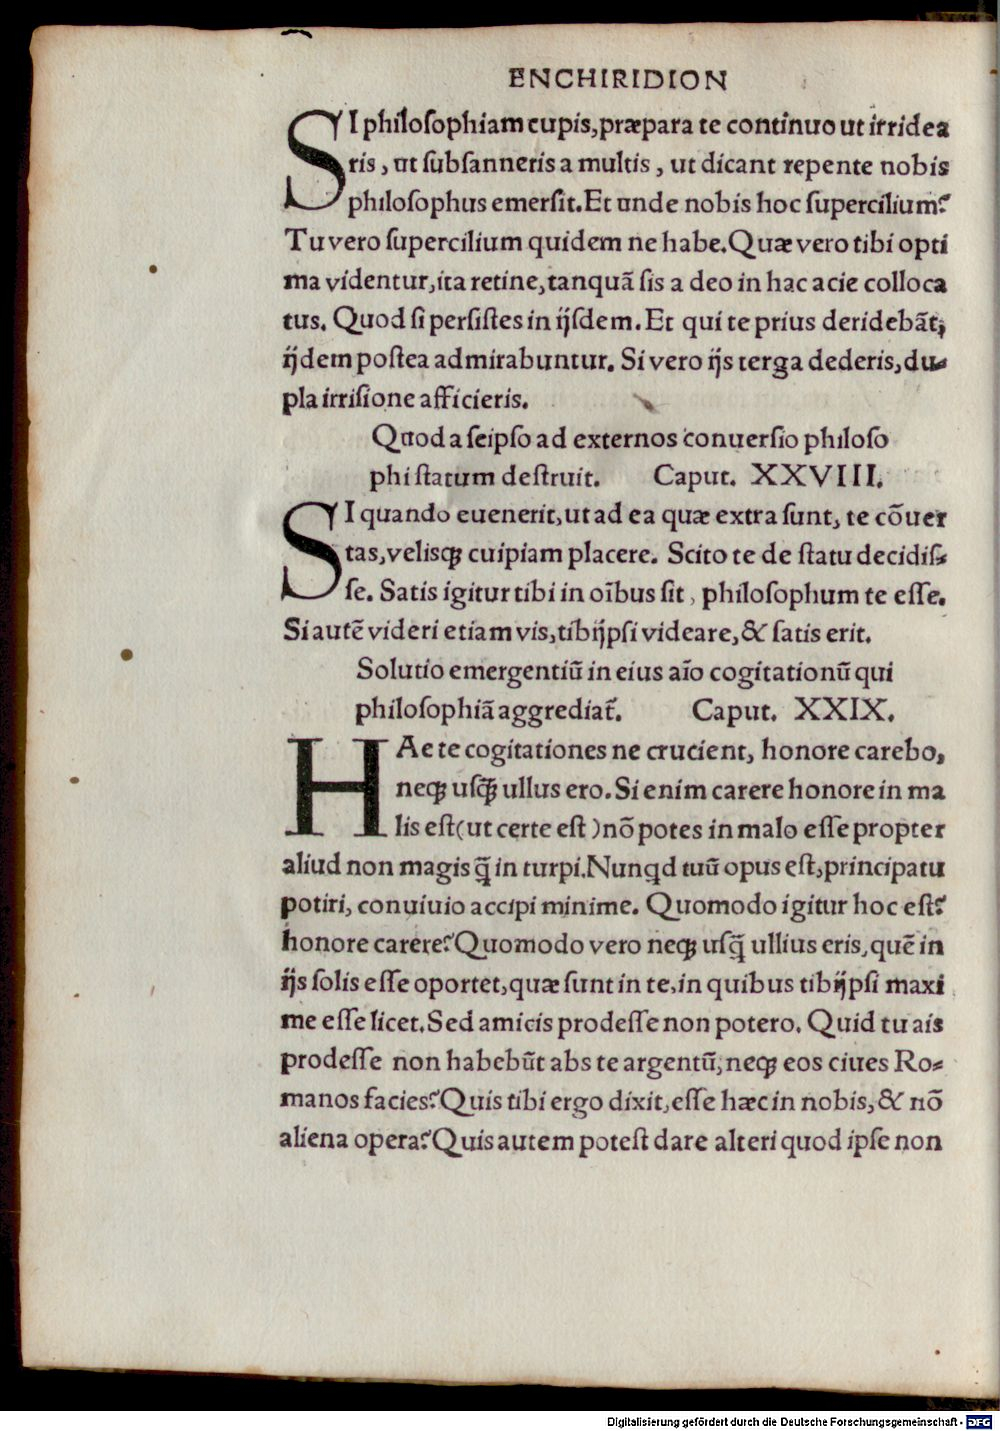 ENCHIRIDION
SI philosophiam cupis, præpara te continuo ut irridea
ris, ut subsanneris a multis, ut dicant repente nobis
philosophus emersit. Et unde nobis hoc supercilium?
Tu vero supercilium quidem ne habe. Quæ vero tibi opti
ma videntur, ita retine, tanquã sis a deo in hac acie colloca
tus. Quod si persistes in ijsdem. Et qui te prius deridebãt,
ijdem postea admirabuntur. Si vero ijs terga dederis, du-
pla irrisione afficieris.
Quod a seipso ad externos conuersio philoso
phi statum destruit. Caput. XXVIII.
SI quando euenerit, ut ad ea quæ extra sunt, te cõuer
tas, velisqꝫ cuipiam placere. Scito te de statu decidis-
se. Satis igitur tibi in oĩbus sit, philosophum te esse.
Si autẽ videri etiam vis, tibijpsi videare, & satis erit.
Solutio emergentiũ in eius aĩo cogitationũ qui
philosophiã aggrediat᷑. Caput. XXIX.
HAe te cogitationes ne crucient, honore carebo,
neqꝫ usq̃ꝫ ullus ero. Si enim carere honore in ma
lis est (ut certe est) nõ potes in malo esse propter
aliud non magis q̃ in turpi. Nunqd tuũ opus est, principatu
potiri, conuiuio accipi minime. Quomodo igitur hoc est?
honore carere? Quomodo vero neqꝫ usq̃ ullius eris, quẽ in
ijs solis esse oportet, quæ sunt in te, in quibus tibijpsi maxi
me esse licet. Sed amicis prodesse non potero. Quid tu ais
prodesse non habebũt abs te argentũ, neqꝫ eos ciues Ro-
manos facies? Quis tibi ergo dixit, esse hæc in nobis, & nõ
aliena opera? Quis autem potest dare alteri quod ipse non
Digitalisierung gefördert durch die Deutsche Forschungsgemeinschaft - DFG